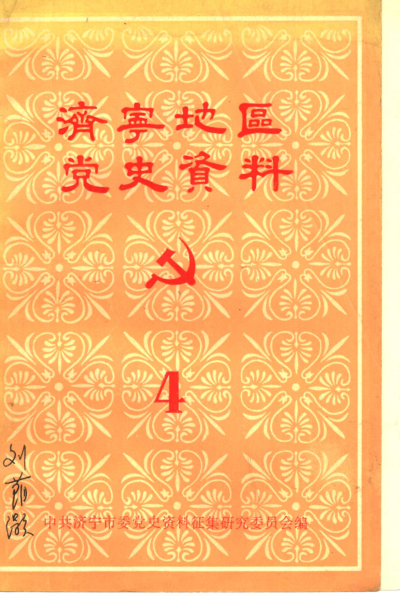 濟寧地區
党史資料
4
中共济宁市委党史资料征集研究委员会编
刘